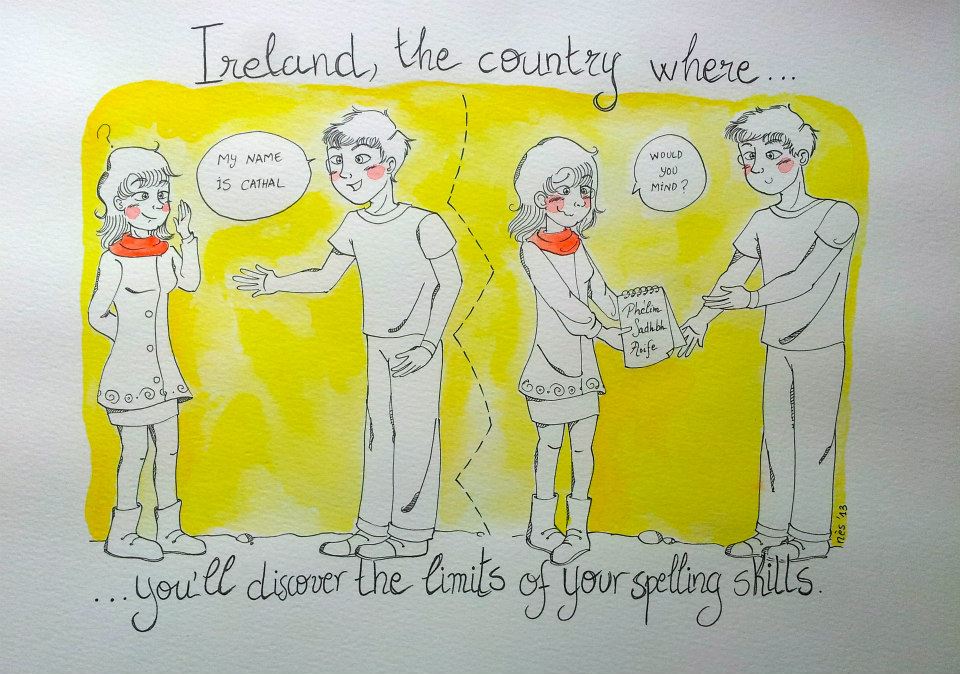 Ireland, the country where...
?
MY NAME
IS CATHAL
WOULD
YOU
MIND?
Phélim
Sadhbh
Aoife
...you'll discover the limits of your spelling skills.